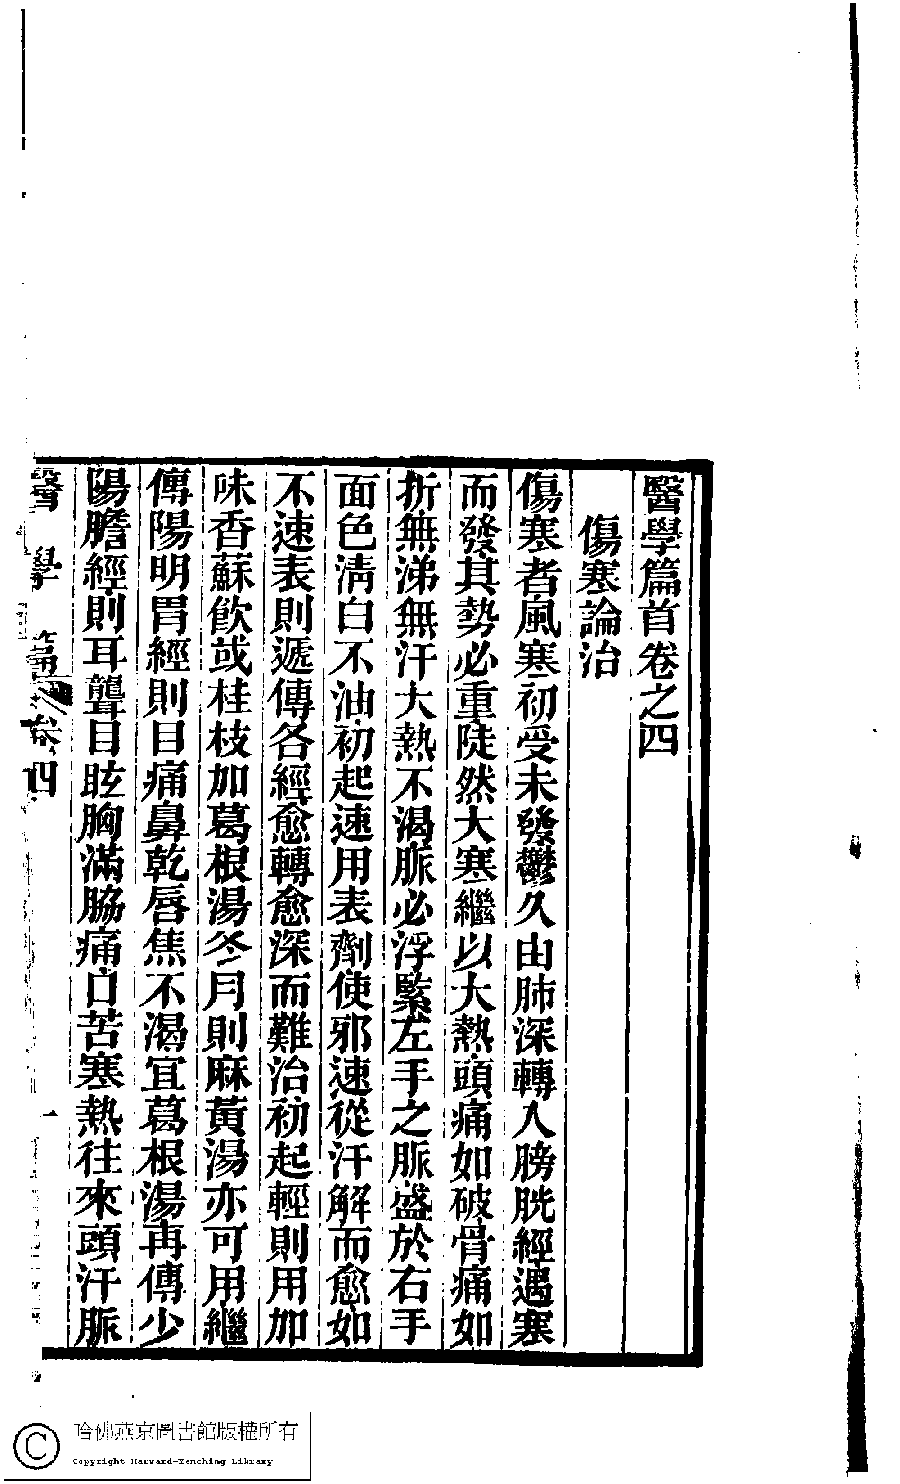 醫學篇首卷之四
傷寒論治
傷寒者風寒初受未發鬱久由肺深轉入膀胱經遇寒
而發其勢必重陡然大寒繼以大熱頭痛如破骨痛如
折無涕無汗大熱不渴脈必浮緊左手之脈盛於右手
面色淸白不油初起速用表劑使邪速從汗解而愈如
不速表則遞傳各經愈轉愈深而難治初起輕則用加
味香蘇飮或桂枝加葛根湯冬月則麻黃湯亦可用繼
傳陽明胃經則目痛鼻乾唇焦不渴宜葛根湯再傳少
陽膽經則耳聾目眩胸滿脇痛口苦寒熱往來頭汗脈
醫學篇首 卷四 一
哈佛燕京圖書館版權所有
Copyright Harvard-Yenching Library